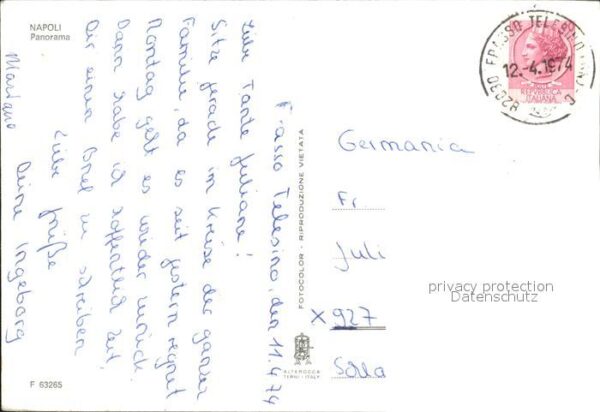 NAPOLI
Panorama
Frasso Telesino, den 11.4.74
Liebe Tante Juliane!
Sitze gerade im Kreise der ganzen
Familie, da es seit gestern regnet
Montag geht es wieder zurück
Dann habe ich hoffentlich Zeit,
Dir einen Brief zu schreiben
Liebe Grüße
Deine Ingeborg
Mariano
F 63265
FOTOCOLOR - RIPRODUZIONE VIETATA
ALTEROCCA
TERNI - ITALY
82030 FRASSO TELESINO
12.-4.1974
REPVBBLICA
ITALIANA
Germania
Fr.
Juli
X 927
privacy protection
Datenschutz